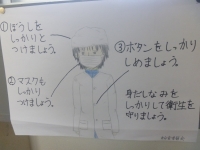 ①ぼうしを
しっかりと
つけましょう。
②マスクも
しっかり
つけましょう。
③ボタンをしっかり
しめましょう。
身だしなみを
しっかりして衛生を
守りましょう。